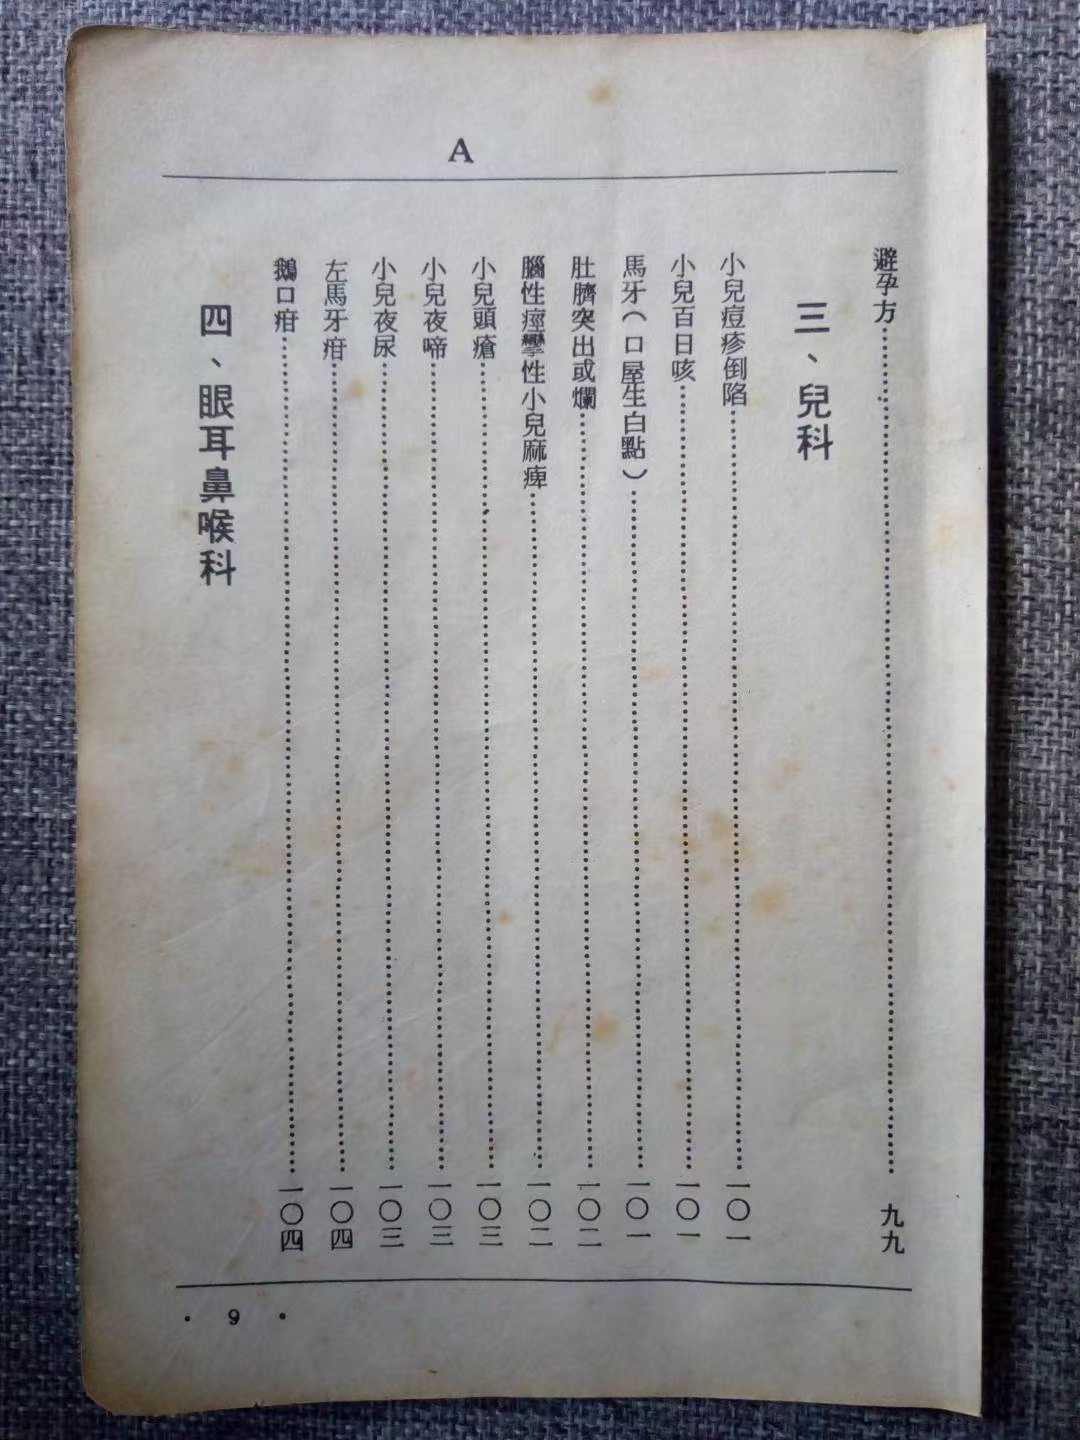 A
避孕方……………………九九
三、兒科
小兒痘疹倒陷……………………一〇一
小兒百日咳……………………一〇一
馬牙(口屋生白點)……………………一〇一
肚臍突出或爛……………………一〇二
腦性痙攣性小兒麻痺……………………一〇二
小兒頭瘡……………………一〇三
小兒夜啼……………………一〇三
小兒夜尿……………………一〇三
左馬牙疳……………………一〇四
鵝口疳……………………一〇四
四、眼耳鼻喉科
· 9 ·